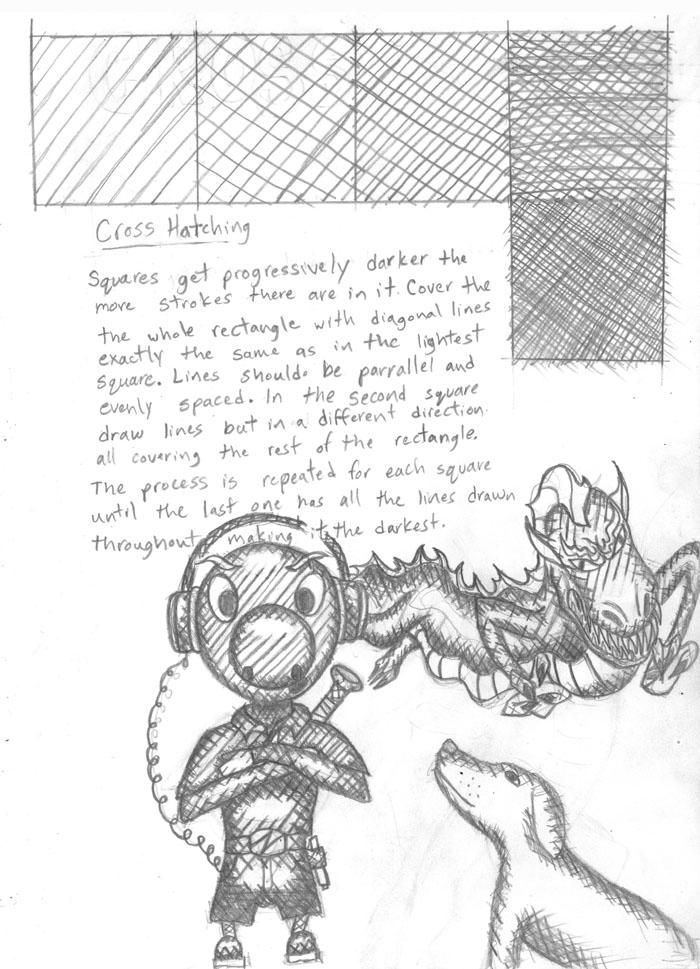 Cross Hatching
Squares get progressively darker the
more strokes there are in it. Cover the
the whole rectangle with diagonal lines
exactly the same as in the lightest
square. Lines should be parrallel and
evenly spaced. In the second square
draw lines but in a different direction
all covering the rest of the rectangle.
The process is repeated for each square
until the last one has all the lines drawn
throughout making it the darkest.